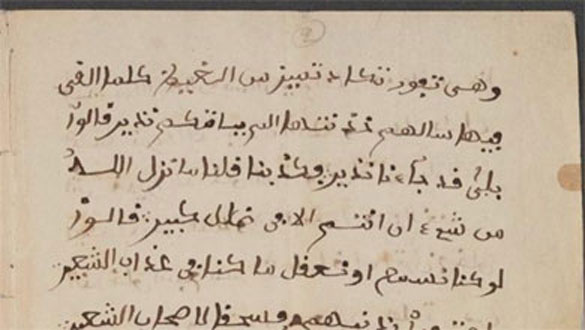 وهي تكاد تمييز من الغيظ كلما القي
فيها سالهم الم ياتكم نذير قالوا
بلى قد جاءنا نذير فكذبنا قلنا ما نزل الله
من شيء ان انتم الا في ضلل كبير قالوا
لو كنا نسمع او نعقل ما كنا في عذاب الشعير
فسحقا لاصحاب الشعير